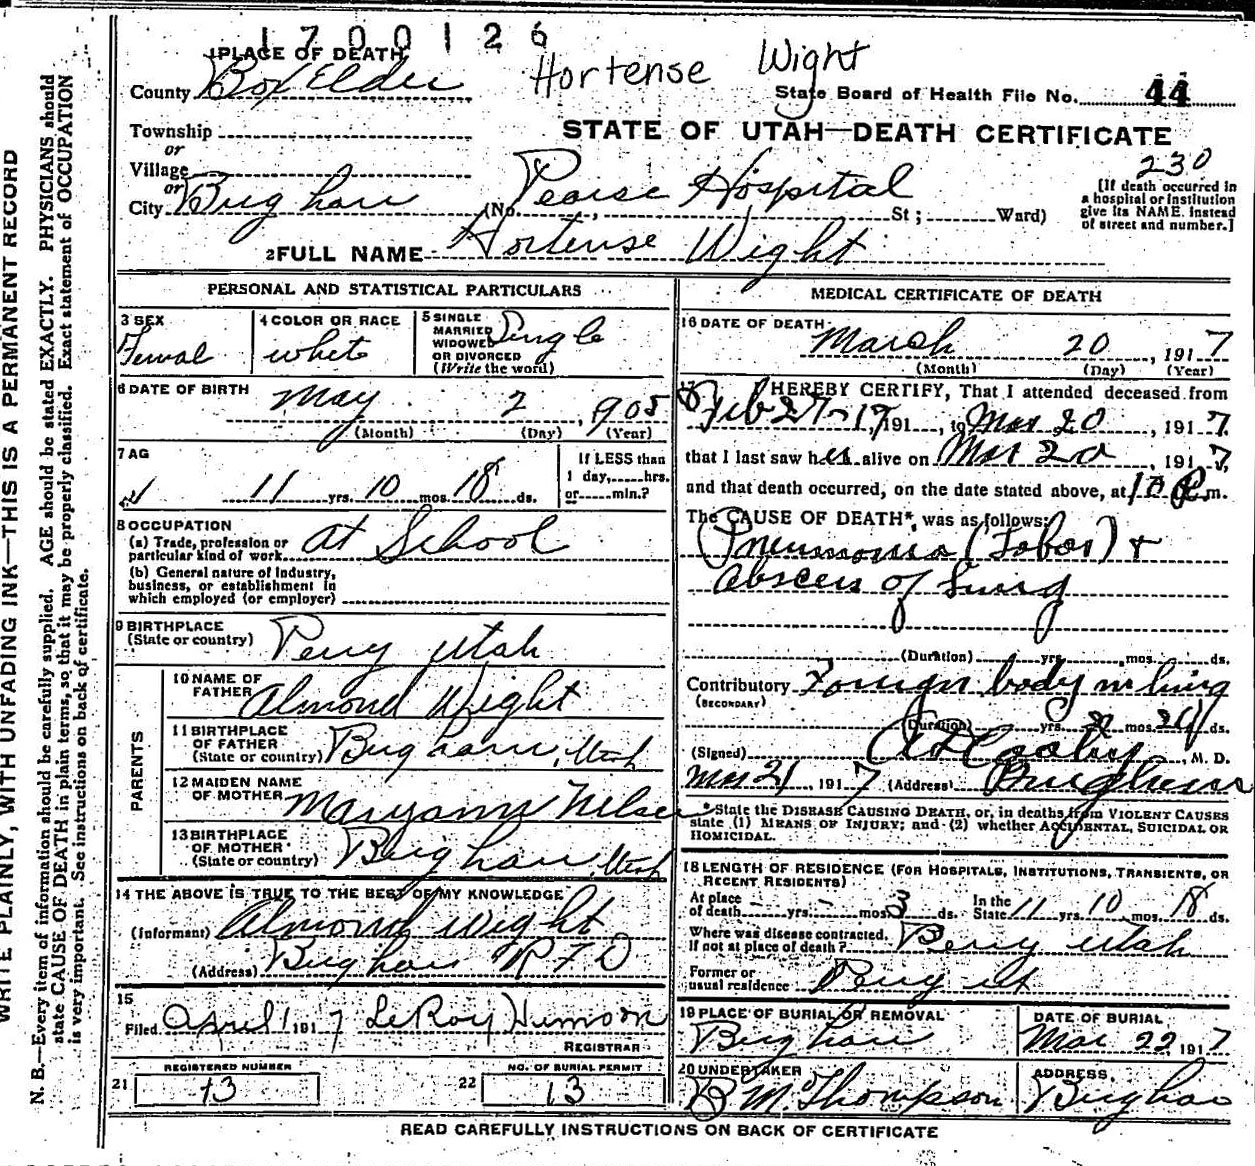 1700126
Hortense Wight
1 PLACE OF DEATH
County Box Elder
State Board of Health File No. 44
Township
or
STATE OF UTAH—DEATH CERTIFICATE
Village
or
230
City Brigham (No. Pearse Hospital St; Ward)
[If death occurred in
a hospital or institution
give its NAME. instead
of street and number.]
2 FULL NAME Hortense Wight
PERSONAL AND STATISTICAL PARTICULARS
3 SEX
Femal
4 COLOR OR RACE
white
5 SINGLE
MARRIED
WIDOWED
OR DIVORCED
(Write the word)
Single
6 DATE OF BIRTH
May 2, 1905
(Month) (Day) (Year)
7 AG
11 yrs. 10 mos. 18 ds.
If LESS than
1 day, hrs.
or min.?
8 OCCUPATION
(a) Trade, profession or
particular kind of work at School
(b) General nature of Industry,
business, or establishment in
which employed (or employer)
9 BIRTHPLACE
(State or country) Perry Utah
PARENTS
10 NAME OF
FATHER Almond Wight
11 BIRTHPLACE
OF FATHER
(State or country) Brigham, Utah
12 MAIDEN NAME
OF MOTHER Maryann Nelsen
13 BIRTHPLACE
OF MOTHER
(State or country) Brigham, Utah
14 THE ABOVE IS TRUE TO THE BEST OF MY KNOWLEDGE
(Informant) Almond Wight
(Address) Brigham R F D
15
Filed April 1 1917 LeRoy
REGISTRAR
REGISTERED NUMBER
21 13
NO. OF BURIAL PERMIT
22 13
MEDICAL CERTIFICATE OF DEATH
16 DATE OF DEATH
March 20, 1917
(Month) (Day) (Year)
17 I HEREBY CERTIFY, That I attended deceased from
Feb 27-17 191, to Mar 20, 1917,
that I last saw her alive on Mar 20, 1917,
and that death occurred, on the date stated above, at P.m.
The CAUSE OF DEATH*, was as follows:
Pneumonia (Lobar) +
abscess of Lung
(Duration) yrs. mos. ds.
Contributory Foreign body in lung
(SECONDARY)
(Duration) yrs. mos. ds.
(Signed) Cooley, M. D.
Mar 21, 1917 (Address) Brigham
*State the DISEASE CAUSING DEATH, or, in deaths from VIOLENT CAUSES
state (1) MEANS OF INJURY; and (2) whether ACCIDENTAL, SUICIDAL OR
HOMICIDAL.
18 LENGTH OF RESIDENCE (FOR HOSPITALS, INSTITUTIONS, TRANSIENTS, OR
RECENT RESIDENTS)
At place
of death - yrs. - mos. 3 ds.
In the
State 11 yrs. 10 mos. 18 ds.
Where was disease contracted,
If not at place of death? Perry Utah
Former or
usual residence Perry ut
19 PLACE OF BURIAL OR REMOVAL
Brigham
DATE OF BURIAL
Mar 22 1917
20 UNDERTAKER
B M. Thompson
ADDRESS
Brigham
READ CAREFULLY INSTRUCTIONS ON BACK OF CERTIFICATE
WRITE PLAINLY, WITH UNFADING INK—THIS IS A PERMANENT RECORD
N. B.—Every item of information should be carefully supplied. AGE should be stated EXACTLY. PHYSICIANS should
state CAUSE OF DEATH in plain terms, so that it may be properly classified. Exact statement of OCCUPATION
is very important. See instructions on back of certificate.